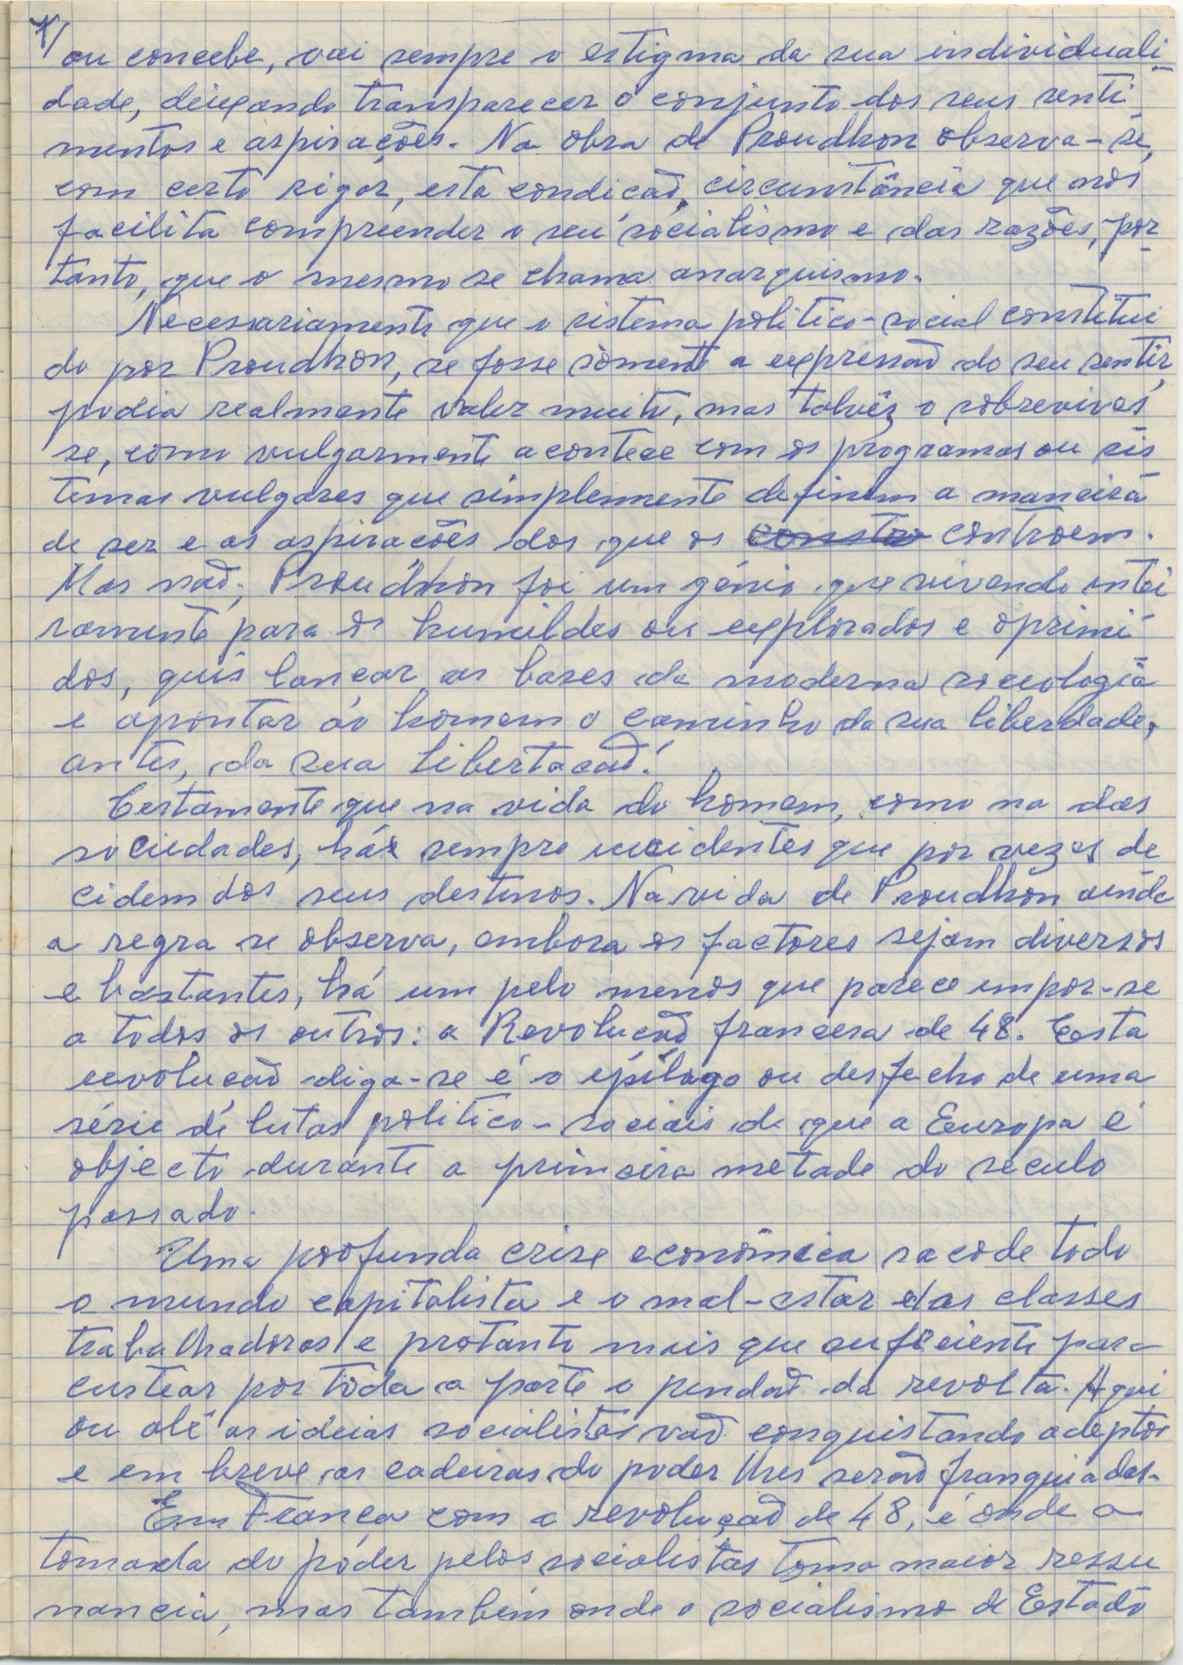 ou concebe, vai sempre o estigma da sua individuali-
dade, deixando transparecer o conjunto dos seus senti
mentos e aspirações. Na obra de Proudhon observa-se,
com certo rigor, esta condição, circumstância que nos
facilita compreender o seu socialismo e das razões, por-
tanto, que o mesmo se chama anarquismo.
Necessariamente que o sistema politico-social constitui
do por Proudhon, se fosse sòmente a expressão do seu sentir,
podia realmente valer muito, mas talvês o sobrevives
se, como vulgarmente acontece com os programas ou sis
temas vulgares que simplesmente definem a maneira
de ser e as aspirações dos que os constro controem.
Mas não; Proudhon foi um génio que vivendo intei
ramente para os humildes ou explorados e oprimi
dos, quis lançar as bases da moderna sociologia
e apontar ao homem o caminho da sua liberdade,
antes, da sua Libertação!
Certamente que na vida do homem, como na das
sociedades, há sempre incidentes que por vezes de
cidem dos seus destinos. Na vida de Proudhon ainda
a regra se observa, embora os factores sejam diversos
e bastantes, há um pelo menos que parece impor-se
a todos os outros: a Revolução francesa de 48. Esta
revolução diga-se é o epílogo ou desfecho de uma
série de lutas politico-sociais de que a Europa é
objecto durante a primeira metade do século
passado.
Uma profunda crise económica sacode todo
o mundo capitalista e o mal-estar das classes
trabalhadoras é protanto mais que suficiente para
custear por toda a parte o pendão da revolta. Aqui
ou alí as ideias socialistas vão conquistando adeptos
e em breve as cadeiras do poder lhes serão franquiadas.
Em França com a revolução de 48, é onde a
tomada do poder pelos socialistas toma maior ressu
nancia, mas também onde o socialismo de Estado